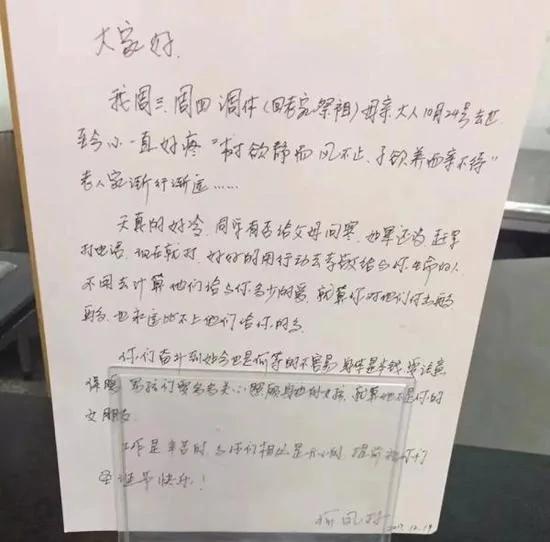 大家好.
我周三、周四调休(回老家祭祖)母亲大人10月24号去世
至今心一直好疼"树欲静而风不止、子欲养而亲不待"
老人家渐行渐远……
天真的好冷,同学有否给父母问寒,如果还没,赶紧
打电话,现在就打,好好的用行动去孝敬给与你生命的人
不用去计算他们给与你多少的爱,就算你对他们付出再多
再多,也永远比不上他们给你的多
你们奋斗到如今也是何等的不容易,身体是本钱,要注意
保暖,男孩们要多多关心照顾身边的女孩,就算她不是你的
女朋友
工作是辛苦的,与你们相处是开心的,提前祝你们
圣诞节快乐!
2017.12.19